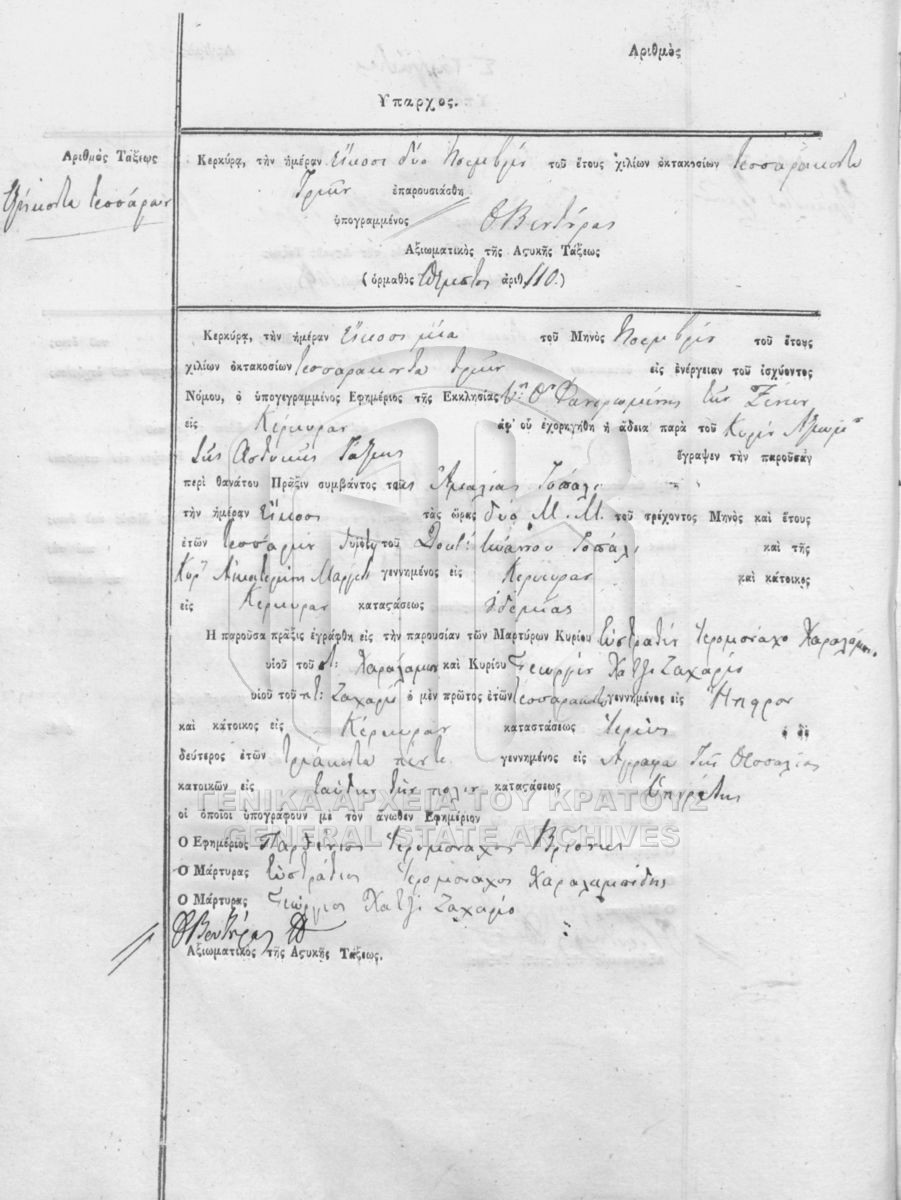 Ἀριθμὸς
Ὕπαρχος.
Ἀριθμὸς Τάξεως
τριάκοντα τεσσάρων
Κερκύρα, τὴν ἡμέραν Εἴκοσι δύο Νοεμβρίου τοῦ ἔτους χιλίων ὀκτακοσίων τεσσαράκοντα
τριῶν ἐπαρουσιάσθη
ὑπογραμμένος
Ὁ Βεντύρας
Ἀξιωματικὸς τῆς Ἀςυκῆς Τάξεως
(ὁρμαθὸς ἀριθ. 110.)
Κερκύρα, τὴν ἡμέραν Εἴκοσι μία τοῦ Μηνὸς Νοεμβρίου τοῦ ἔτους
χιλίων ὀκτακοσίων τεσσαράκοντα τριῶν εἰς ἐνέργειαν τοῦ ἰσχύοντος
Νόμου, ὁ ὑπογεγραμμένος Ἐφημέριος τῆς Ἐκκλησίας Φανερωμένης τῶν Ξένων
εἰς Κέρκυραν ἀφ' οὗ ἐχορηγήθη ἡ ἄδεια παρὰ τοῦ Κυρίου
τῆς Ἀστυκῆς Τάξεως ἔγραψεν τὴν παροῦσαν
περὶ θανάτου Πρᾶξιν συμβάντος τῆς Ἀμαλίας Τυπάλδ
τὴν ἡμέραν Εἴκοσι τὰς ὥρας δύο Μ. Μ. τοῦ τρέχοντος Μηνὸς καὶ ἔτους
ἐτῶν τεσσάρων τοῦ Δουτ: Ἰωάννου καὶ τῆς
Κυρ Αἰκατερίνης γεννημένος εἰς Κέρκυραν καὶ κάτοικος
εἰς Κέρκυραν κατας-άσεως
Ἡ παροῦσα πρᾶξις ἐγράφθη εἰς τὴν παρουσίαν τῶν Μαρτύρων Κυρίου Εὐστρατίου Ἱερομονάχο Χαραλάμπ.
υἱοῦ τοῦ Χαραλάμπου καὶ Κυρίου Γεωργίου Χατζῆ Ζαχαρίο
υἱοῦ τοῦ ποτ: Ζαχαρίο ὁ μὲν πρῶτος ἐτῶν τεσσαράκοντα γεννημένος εἰς Ἤπηρον
καὶ κάτοικος εἰς Κέρκυραν καταστάσεως Ἱερεὺς ὁ δὲ
δεύτερος ἐτῶν τριάκοντα πέντε γεννημένος εἰς Ἄγραφα τῆς Θεσσαλίας
κατοικῶν εἰς ταύτην τὴν πόλιν κατας-άσεως Ὑπηρέτης
οἱ ὁποῖοι ὑπογράφουν με τὸν ἄνωθεν Ἐφημέριον
ΓΕΝΙΚΑ ΑΡΧΕΙΑ ΤΟΥ ΚΡΑΤΟΥΣ
GENERAL STATE ARCHIVES
Ὁ Ἐφημέριος Παρθένιος Ἱερομόναχος Βριόνης
Ὁ Μάρτυρας Εὐστράτιος Ἱερομόναχος Χαραλαμπίδης
Ὁ Μάρτυρας Γεώργιος Χατζῆ Ζαχαρίο
Ὁ Βεντύρας
Ἀξιωματικος τῆς Ἀςυκῆς Τάξεως.